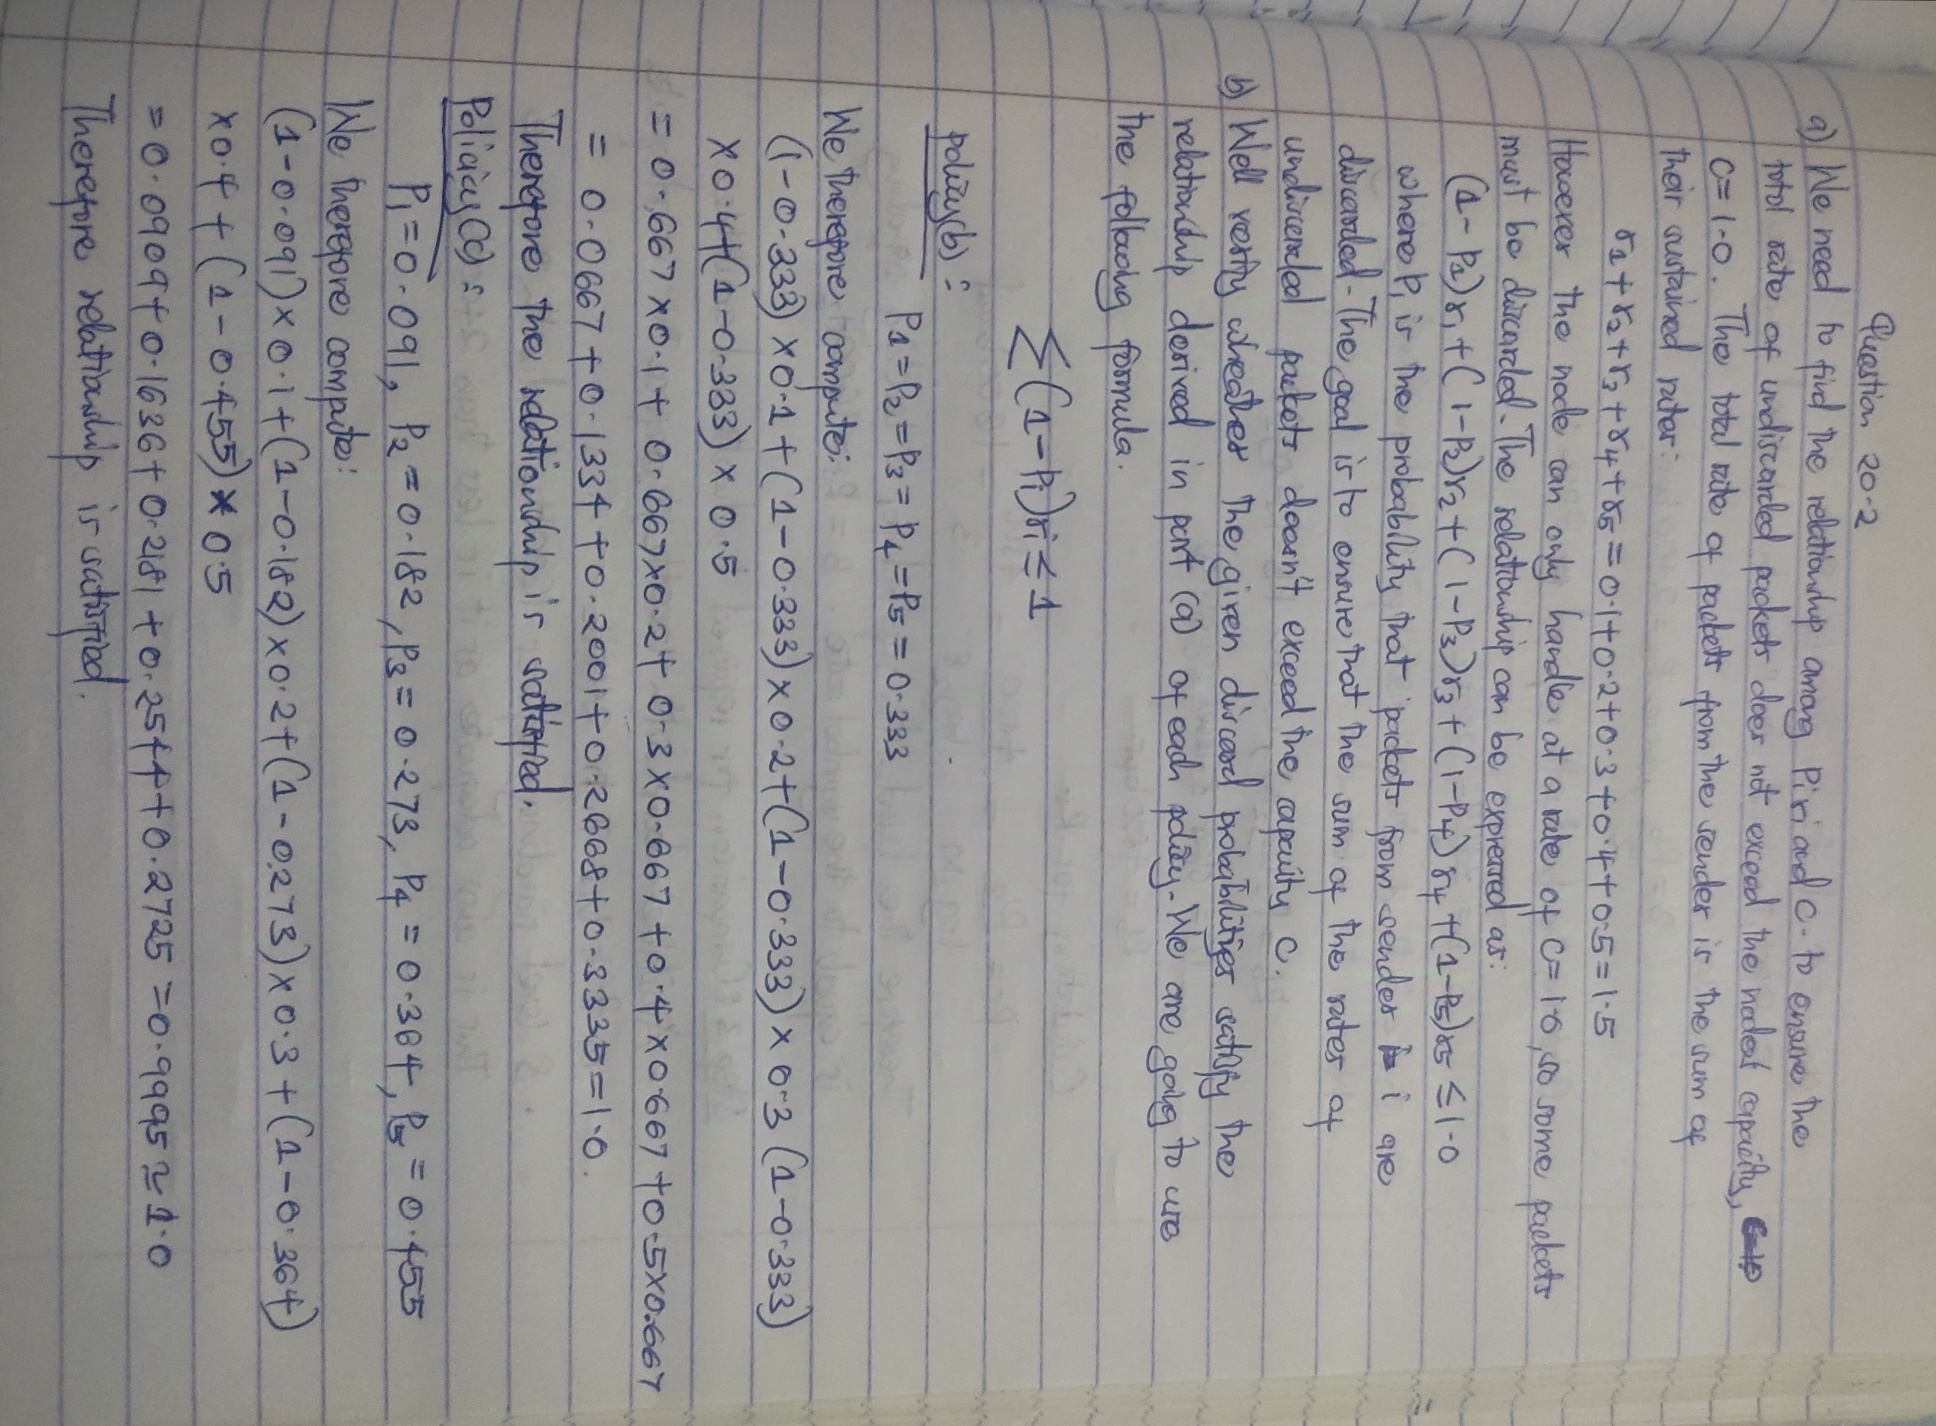 Question 20.2
a) We need to find the relationship among Piri and C. to ensure the
total rate of undiscarded packets does not exceed the nodes capacity,
C=1.0. The total rate of packets from the sender is the sum of
their sustained rates:
r1+r2+r3+r4+r5=0.1+0.2+0.3+0.4+0.5=1.5
However the node can only handle at a rate of C=1.0, so some packets
must be discarded. The relationship can be expressed as:
(1-P1)r1+(1-P2)r2+(1-P3)r3+(1-P4)r4+(1-P5)r5≤1.0
where Pi is the probability that packets from sender i are
discarded. The goal is to ensure that the sum of the rates of
undiscarded packets doesn't exceed the capacity C.
b) Well verify wheather the given discard probabilities satisfy the
relationship derived in part (a) of each policy. We are going to use
the following formula.
∑(1-Pi)ri≤1
policy(b):
P1=P2=P3=P4=P5=0.333
We therefore compute:
(1-0.333)×0.1+(1-0.333)×0.2+(1-0.333)×0.3(1-0.333)
×0.4+(1-0.333)×0.5
=0.667×0.1+0.667×0.2+0.3×0.667+0.4×0.667+0.5×0.667
=0.0667+0.1334+0.2001+0.2668+0.3335=1.0.
Therefore the relationship is satisfied.
P1=0.091, P2=0.182, P3=0.273, P4=0.364, P5=0.455
We therefore compute:
(1-0.091)×0.1+(1-0.182)×0.2+(1-0.273)×0.3+(1-0.364)
×0.4+(1-0.455)×0.5
=0.0909+0.1636+0.2181+0.2544+0.2725=0.9995≃1.0
Therefore relationship is satisfied.